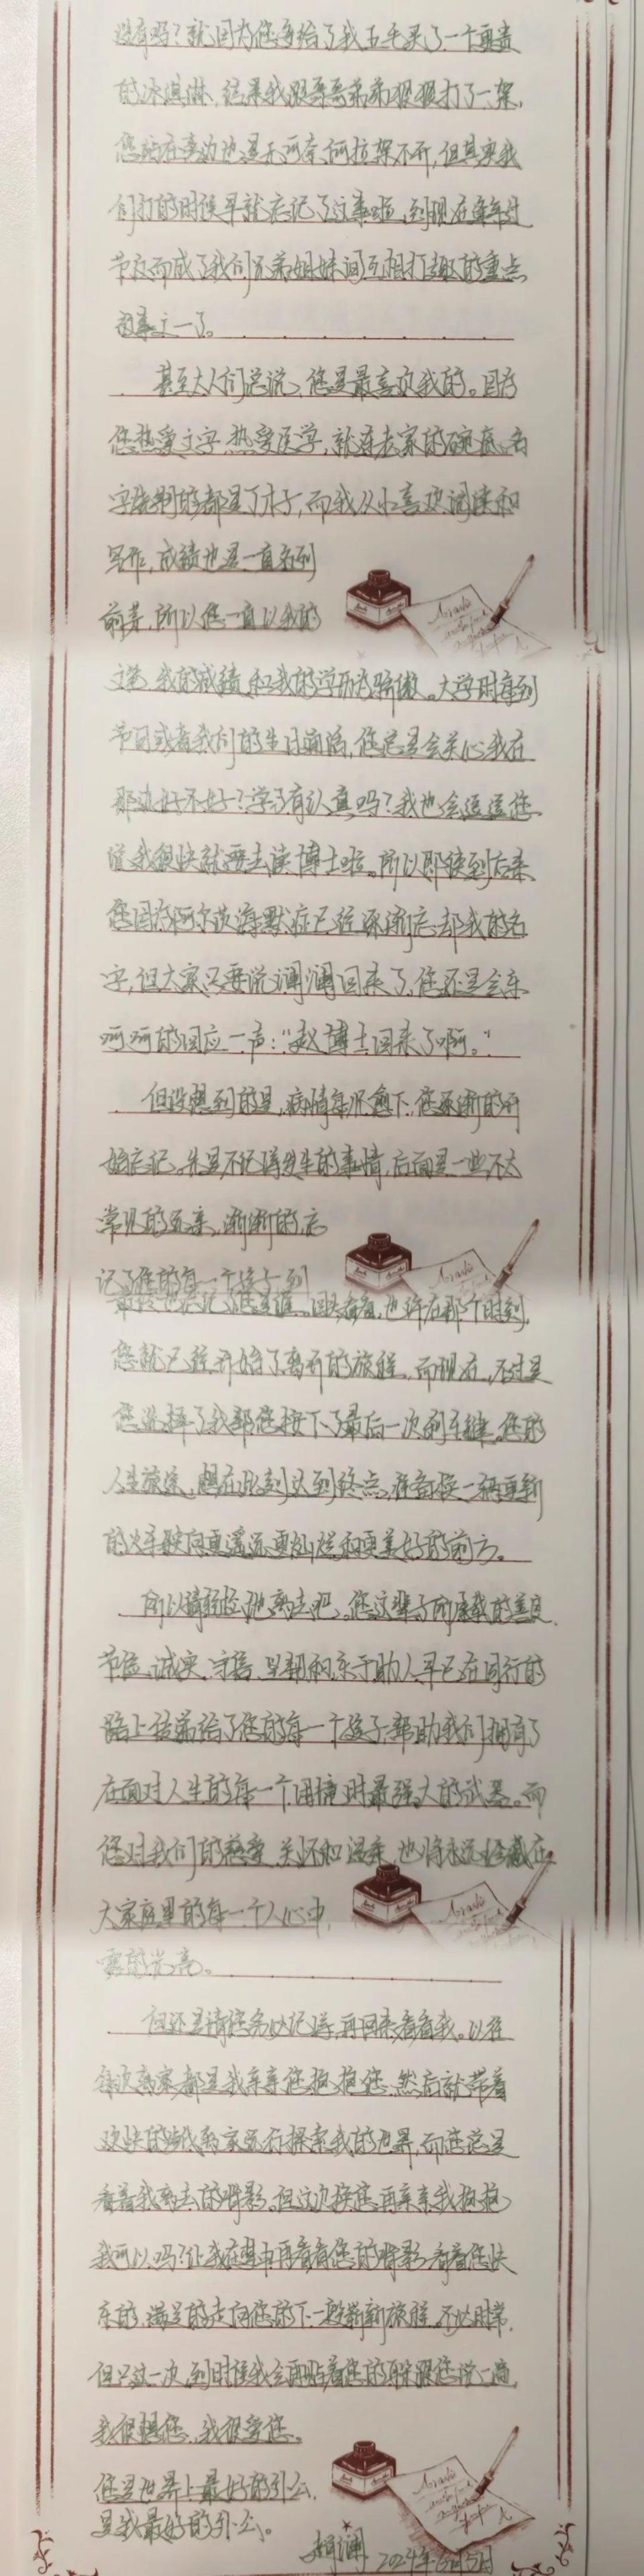 没有吗？就因为您多给了我五毛买了一个更贵
的冰淇淋，结果我跟哥哥弟弟狠狠打了一架，
您站在旁边也是无可奈何拉架不开，但其实我
们打的时候早就忘记了这事啦，到现在逢年过
节反而成了我们兄弟姐妹间互相打趣的重点
故事之一了。
甚至大人们总说，您是最喜欢我的。因为
您热爱文字，热爱医学，就连老家的碗底，名
字刻的都是丁木子，而我从小喜欢阅读和
写作，成绩也是一直名列
前茅，所以您一直以我的
文笔，我的成绩和我的学历为骄傲。大学时每到
节日或者我们的生日通话，您总是会关心我在
那边好不好？学习有认真吗？我也会逗逗您
说我很快就要去读博士啦。所以即使到后来
您因为阿尔茨海默症已经逐渐忘却我的名
字，但大家只要说澜澜回来了，您还是会乐
呵呵的回应一声：“赵博士回来了啊。”
但没想到的是，病情每况愈下，您逐渐的开
始忘记。先是不记得发生的事情，后面是一些不太
常见的远亲，渐渐的忘
记了您的每一个孩子，到
最终也忘记了您是谁。回头看看，也许在那个时刻，
您就已经开始了离开的旅程。而现在，不过是
您选择了我帮您按下了最后一次刹车键。您的
人生旅途，想在此刻达到终点，准备换一辆更新
的火车驶向更遥远更灿烂和更美好的前方。
所以请轻松地离去吧。您这辈子所承载的善良、
节俭、诚实、守信、坚韧和乐于助人早已在同行的
路上传递给了您的每一个孩子，帮助我们拥有了
在面对人生的每一个困境时最强大的武器。而
您对我们的慈爱、关怀和温柔，也将永远珍藏在
大家庭里的每一个人心中，
光亮。
但还是请您务必记得，再回来看看我。以往
每次离家都是我亲亲您抱抱您，然后就带着
欢快的步伐离家远行探索我的世界，而您总是
看着我离去的背影，但这次换您再亲亲我抱抱
我可以吗？让我在梦中再看看您的背影，看着您快
乐的，满足的走向您的下一段崭新旅程，不必时常，
但只这一次，到时候我会再贴着您的脸跟您说一遍，
我很想您，我很爱您。
您是世界上最好的外公，
是我最好的外公。
赵澜 2024年6月5日